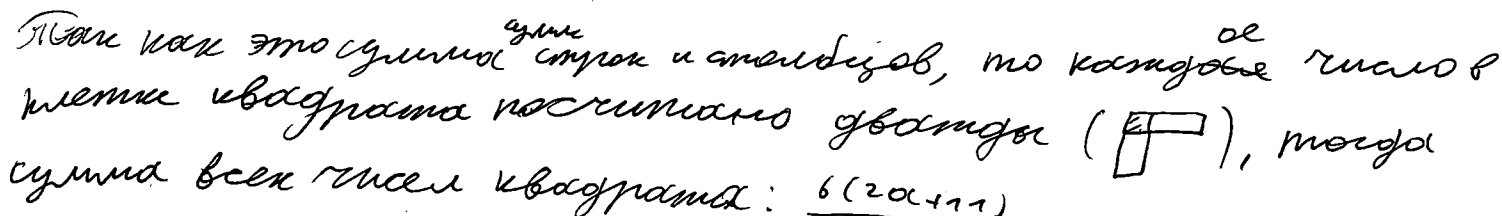 Так как это сумма сумм строк и столбцов, то каждое число в
клетке квадрата посчитано дважды ( ), тогда
сумма всех чисел квадрата: 6(2a+11)